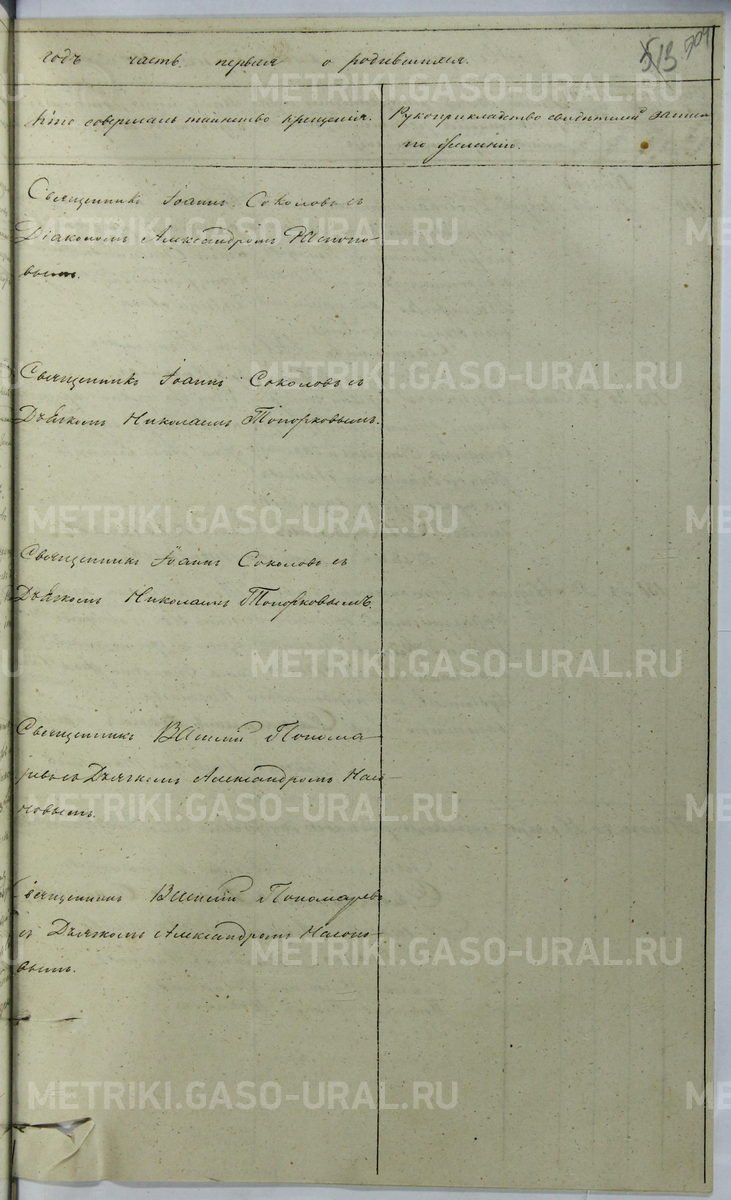 годъ часть первая о родившихся.
513 504
Кто совершалъ таинство крещенія.
Рукоприкладство свидѣтелей записи
по желанію.
Священникъ Іоаннъ Соколовъ съ
Діакономъ Александромъ
вымъ.
Священникъ Іоаннъ Соколовъ съ
Дьячкомъ Николаемъ Топорковымъ.
Священникъ Іоаннъ Соколовъ съ
Дьячкомъ Николаемъ Топорковымъ.
Священникъ Василій Понома
ревъ съ Дьячкомъ Александромъ
новымъ.
Священникъ Василій Пономаревъ
съ Дьячкомъ Александромъ
вымъ.
METRIKI.GASO-URAL.RU